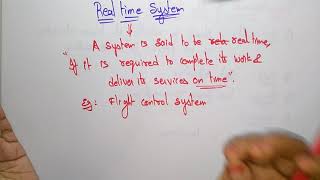 Real time System
A system is said to be real time,
"If it is required to complete its work &
deliver its services on time".
Eg: Flight control system